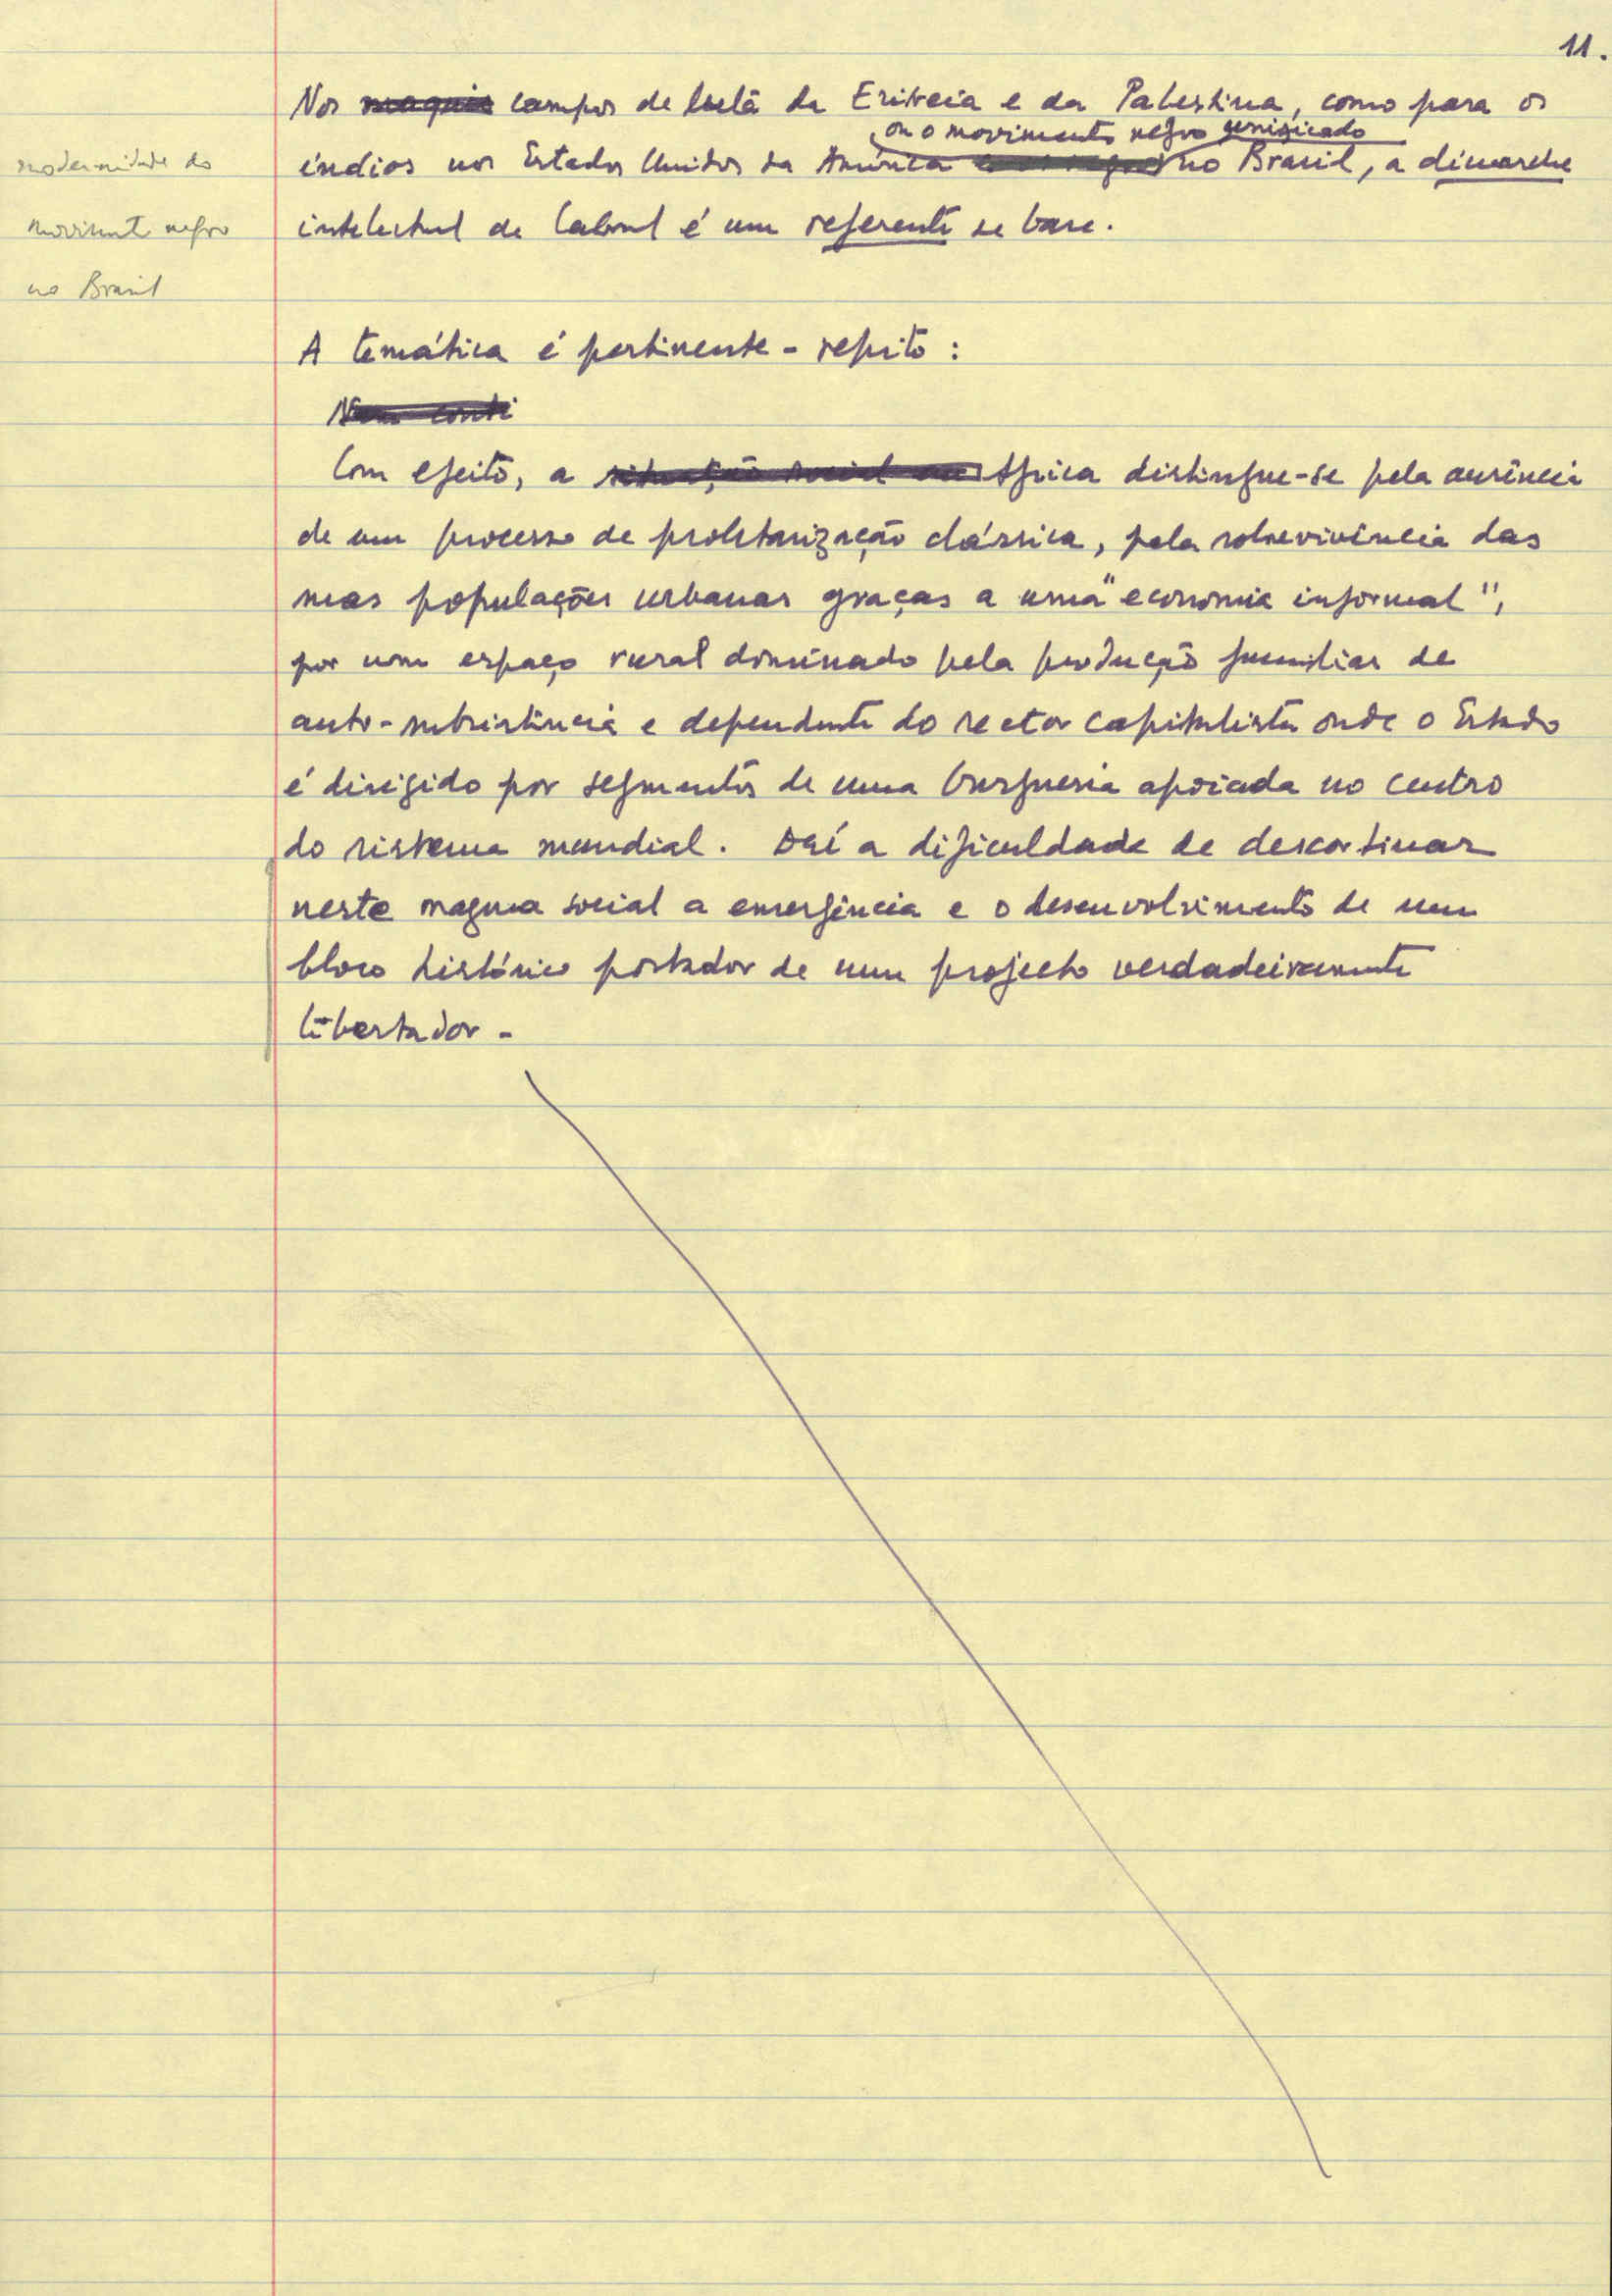 11.
Nos maquis campos de luta da Eritreia e da Palestina, como para os
ou o movimento negro unificado
índios nos Estados Unidos da América no Brasil, a dimarche
intelectual de Cabral é um referente de base.
modernidade do
movimento negro
no Brasil
A temática é pertinente - repito :
Nem conti
Com efeito, a situação social em Africa distingue-se pela ausência
de um processo de proletarização clássica, pela sobrevivência das
suas populações urbanas graças a uma "economia informal",
por um espaço rural dominado pela produção familiar de
auto-subsistência e dependente do sector capitalista onde o Estado
é dirigido por segmentos de uma burguesia apoiada no centro
do sistema mundial. Daí a dificuldade de descortinar
neste magma social a emergência e o desenvolvimento de um
bloco histórico portador de um projecto verdadeiramente
libertador -